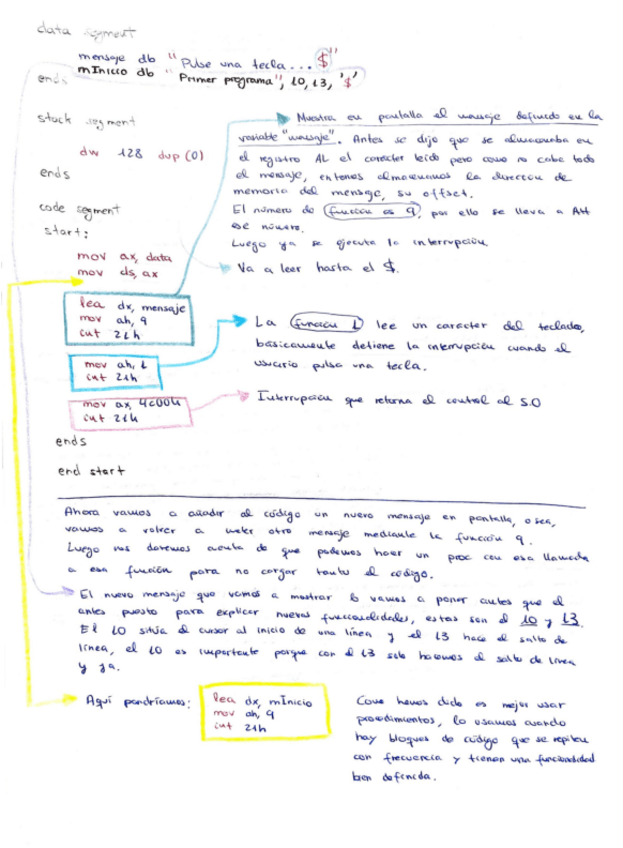 data segment
mensaje db "Pulse una tecla... $"
mInicio db "Primer programa", 10, 13, '$'
ends
stack segment
dw 128 dup (0)
ends
code segment
start:
mov ax, data
mov ds, ax
lea dx, mensaje
mov ah, 9
int 21h
mov ah, 1
int 21h
mov ax, 4c00h
int 21h
ends
end start
Muestra en pantalla el mensaje definido en la
variable "mensaje". Antes se dijo que se almacenaba en
el registro AL el carácter leído pero como no cabe todo
el mensaje, entonces almacenamos la dirección de
memoria del mensaje, su offset.
El número de función es 9, por ello se lleva a AH
ese número.
Luego ya se ejecuta la interrupción
Va a leer hasta el $.
La función 1 lee un carácter del teclado,
básicamente detiene la interrupción cuando el
usuario pulsa una tecla.
Interrupción que retorna el control al S.O
Ahora vamos a añadir al código un nuevo mensaje en pantalla, o sea,
vamos a volver a meter otro mensaje mediante la función 9.
Luego nos daremos cuenta de que podemos hacer un proc con esa llamada
a esa función para no cargar tanto el código.
El nuevo mensaje que vamos a mostrar lo vamos a poner antes que el
antes puesto para explicar nuevas funcionalidades, estas son el 10 y 13.
El 10 sitúa el cursor al inicio de una línea y el 13 hace el salto de
línea, el 10 es importante porque con el 13 solo hacemos el salto de línea
y ya.
Aquí pondríamos:
lea dx, mInicio
mov ah, 9
int 21h
Como hemos dicho es mejor usar
procedimientos, lo usamos cuando
hay bloques de código que se repiten
con frecuencia y tienen una funcionalidad
bien definida.